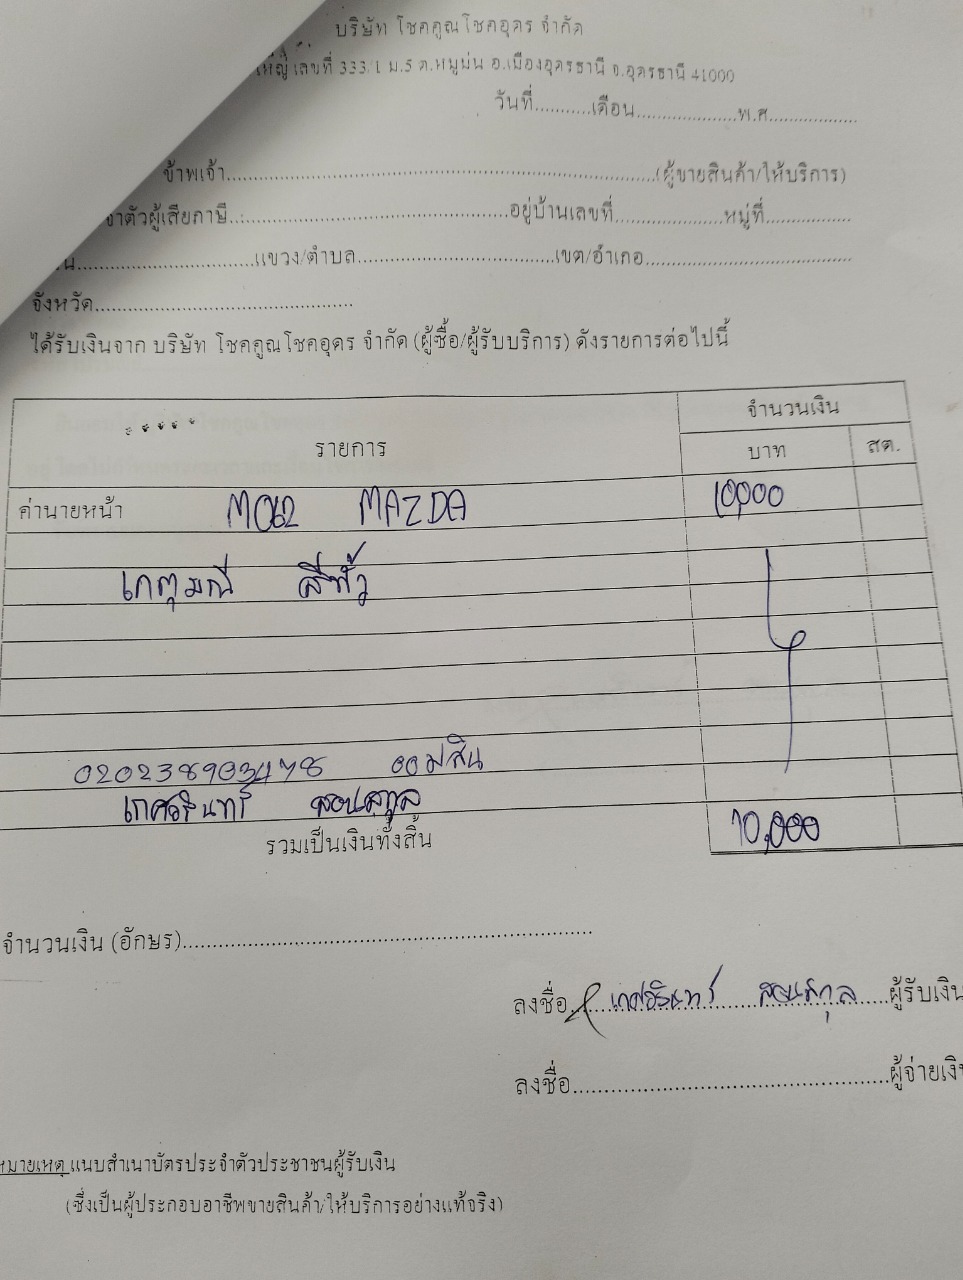 บริษัท โชคคูณโชคอุดร จำกัด
เลขที่ 333/1 ม.5 ต.หมูม่น อ.เมืองอุดรธานี จ.อุดรธานี 41000
วันที่...........เดือน....................พ.ศ..................
ข้าพเจ้า...........................................................................(ผู้ขายสินค้า/ให้บริการ)
จำตัวผู้เสียภาษี...............................................อยู่บ้านเลขที่...................หมู่ที่................
...............................แขวง/ตำบล...................................เขต/อำเภอ....................................
จังหวัด.............................................
ได้รับเงินจาก บริษัท โชคคูณโชคอุดร จำกัด (ผู้ซื้อ/ผู้รับบริการ) ดังรายการต่อไปนี้
รายการ จำนวนเงิน
บาท สต.
ค่านายหน้า M062 MAZDA 10,000
เกตุมณี สีทิ้ว
020238903478 ออมสิน
เกศรินทร์ สอนสกุล
รวมเป็นเงินทั้งสิ้น 10,000
จำนวนเงิน (อักษร)....................................................................
ลงชื่อ เกศรินทร์ สอนสกุล ผู้รับเงิน
ลงชื่อ......................................................ผู้จ่ายเงิน
หมายเหตุ แนบสำเนาบัตรประจำตัวประชาชนผู้รับเงิน
(ซึ่งเป็นผู้ประกอบอาชีพขายสินค้า/ให้บริการอย่างแท้จริง)